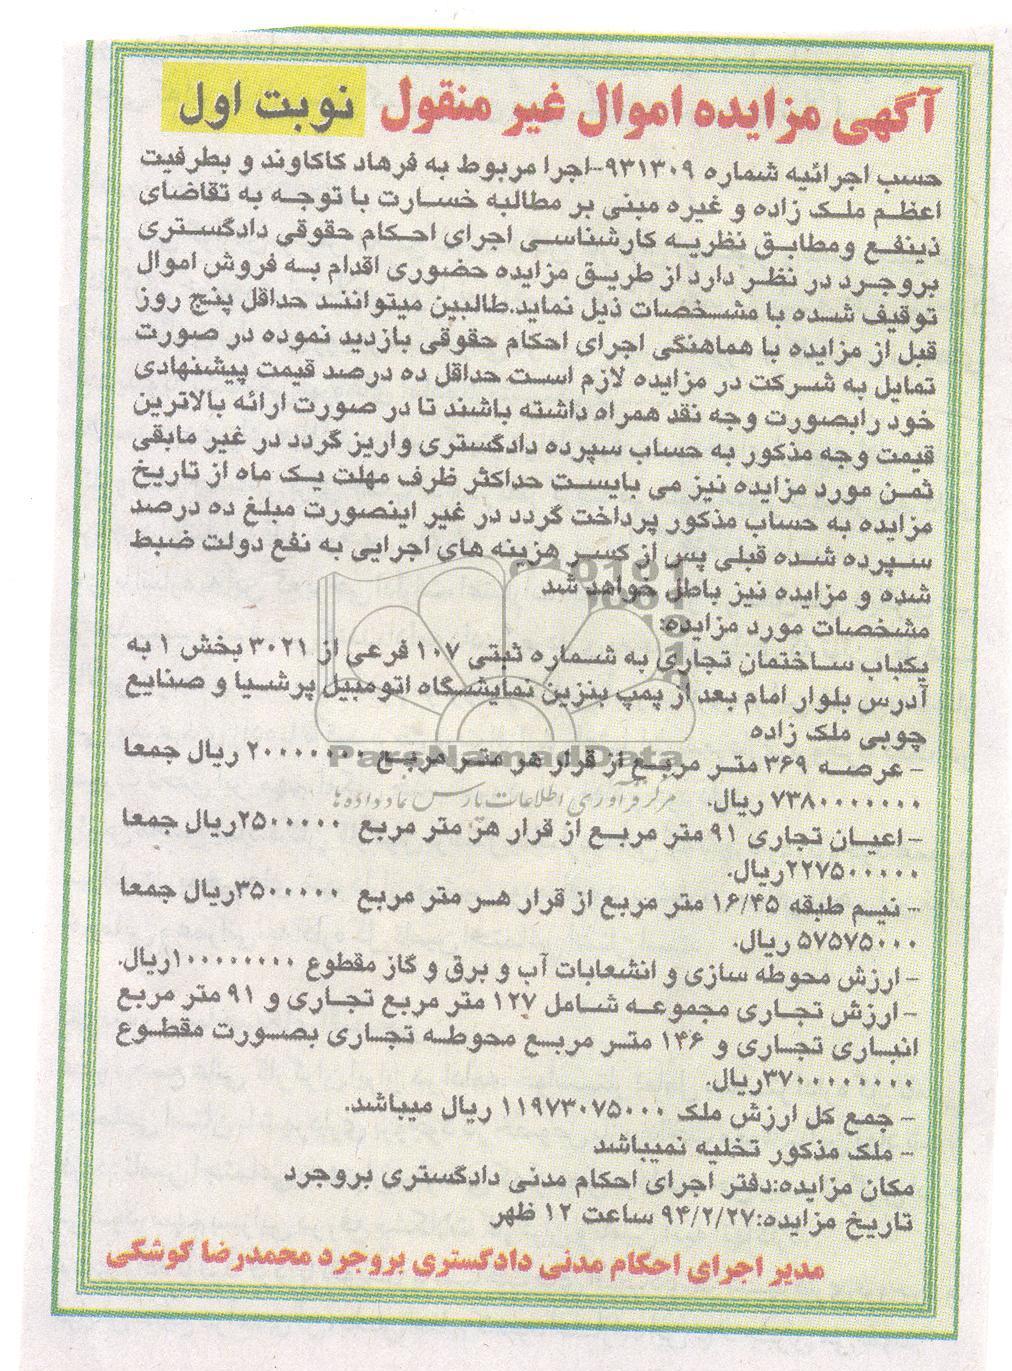 آگهی مزایده اموال غیر منقول نوبت اول
حسب اجرائیه شماره ۹۳۱۳۰۹-اجرا مربوط به فرهاد کاکاوند و بطرفیت
اعظم ملک زاده و غیره مبنی بر مطالبه خسارت با توجه به تقاضای
ذینفع ومطابق نظریه کارشناسی اجرای احکام حقوقی دادگستری
بروجرد در نظر دارد از طریق مزایده حضوری اقدام به فروش اموال
توقیف شده با مشخصات ذیل نماید.طالبین میتوانند حداقل پنج روز
قبل از مزایده با هماهنگی اجرای احکام حقوقی بازدید نموده در صورت
تمایل به شرکت در مزایده لازم است.حداقل ده درصد قیمت پیشنهادی
خود رابصورت وجه نقد همراه داشته باشند تا در صورت ارائه بالاترین
قیمت وجه مذکور به حساب سپرده دادگستری واریز گردد در غیر مابقی
ثمن مورد مزایده نیز می بایست حداکثر ظرف مهلت یک ماه از تاریخ
مزایده به حساب مذکور پرداخت گردد در غیر اینصورت مبلغ ده درصد
سپرده شده قبلی پس از کسر هزینه های اجرایی به نفع دولت ضبط
شده و مزایده نیز باطل خواهد شد
مشخصات مورد مزایده:
یکباب ساختمان تجاری به شماره ثبتی ۱۰۷ فرعی از ۳۰۲۱ بخش ۱ به
آدرس بلوار امام بعد از پمپ بنزین نمایشگاه اتومبیل پرشیا و صنایع
چوبی ملک زاده
- عرصه ۳۶۹ متر مربع از قرار هر متر مربع ۲۰۰۰۰۰۰۰ ریال جمعا
۷۳۸۰۰۰۰۰۰۰ ریال.
- اعیان تجاری ۹۱ متر مربع از قرار هر متر مربع ۲۵۰۰۰۰۰ریال جمعا
۲۲۷۵۰۰۰۰۰ریال.
- نیم طبقه ۱۶/۴۵ متر مربع از قرار هر متر مربع ۳۵۰۰۰۰۰ریال جمعا
۵۷۵۷۵۰۰۰ ریال.
- ارزش محوطه سازی و انشعابات آب و برق و گاز مقطوع ۱۰۰۰۰۰۰۰۰ریال.
- ارزش تجاری مجموعه شامل ۱۲۷ متر مربع تجاری و ۹۱ متر مربع
انباری تجاری و ۱۴۶ متر مربع محوطه تجاری بصورت مقطوع
۳۷۰۰۰۰۰۰۰۰ریال.
- جمع کل ارزش ملک ۱۱۹۷۳۰۷۵۰۰۰ ریال میباشد.
- ملک مذکور تخلیه نمیباشد
مکان مزایده:دفتر اجرای احکام مدنی دادگستری بروجرد
تاریخ مزایده:۹۴/۲/۲۷ ساعت ۱۲ ظهر
مدیر اجرای احکام مدنی دادگستری بروجرد محمدرضا گوشکی
ParsNamadData
مرکز فرآوری اطلاعات پارس نماد داده ها